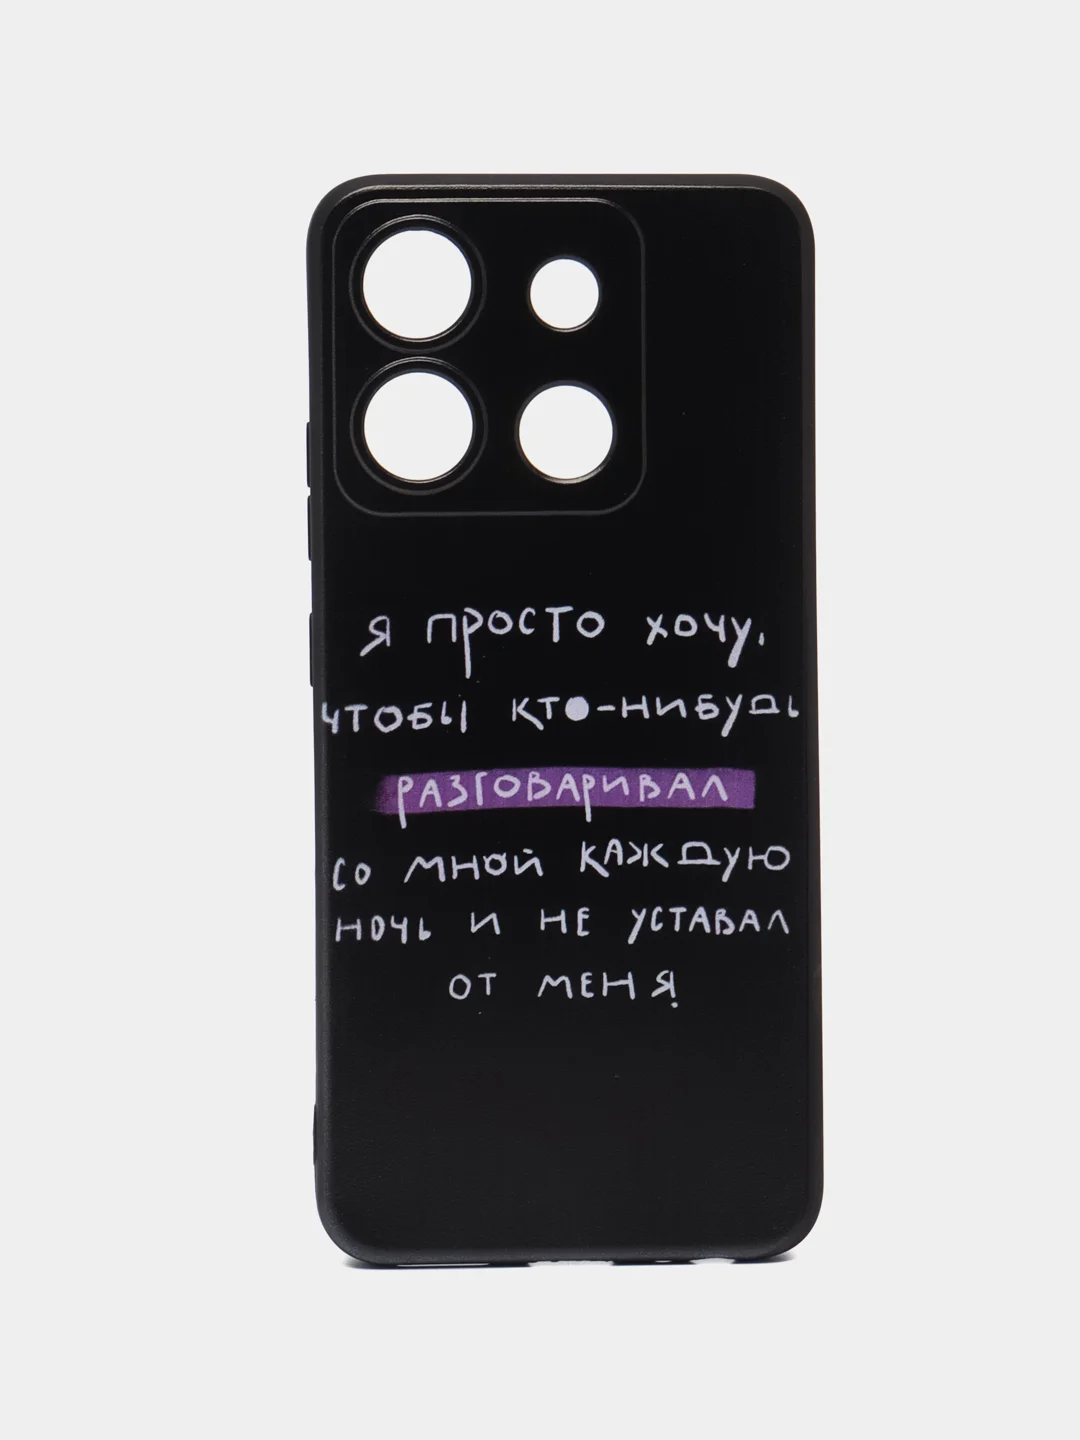 я просто хочу,
чтобы кто-нибудь
разговаривал
со мной каждую
ночь и не уставал
от меня.